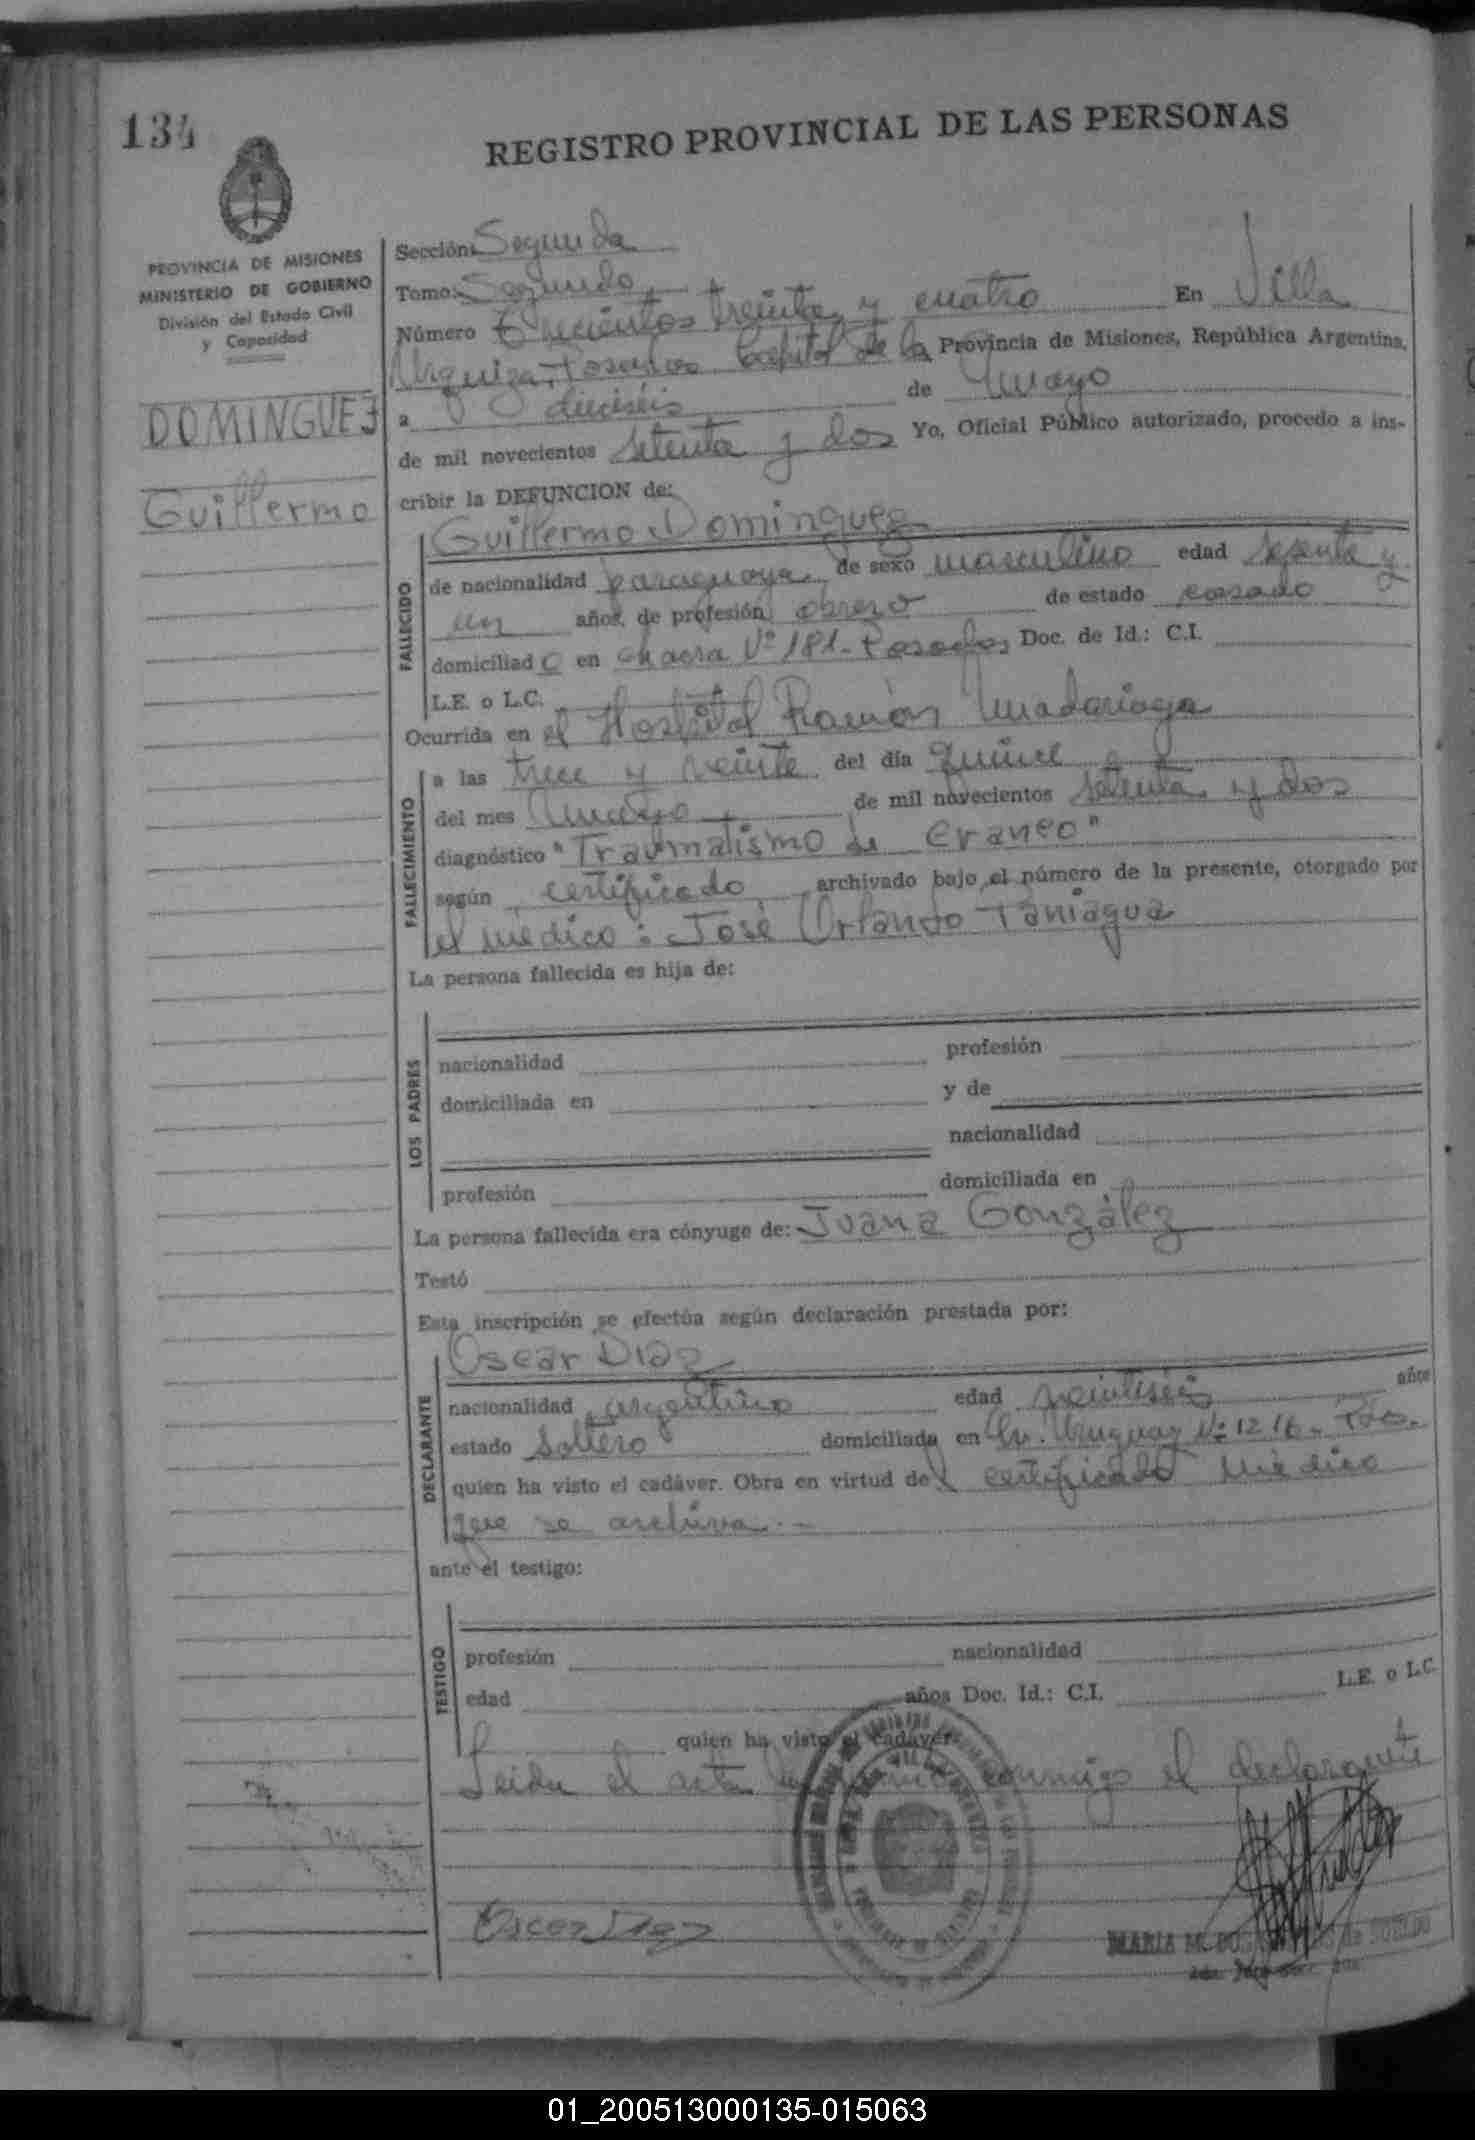 134
REGISTRO PROVINCIAL DE LAS PERSONAS
PROVINCIA DE MISIONES
MINISTERIO DE GOBIERNO
División del Estado Civil
y Capacidad
DOMINGUEZ
Guillermo
Sección: Segunda
Tomo: Segundo
Número Trecientos treinta y cuatro En Villa
Urquiza, Posadas Capital de la Provincia de Misiones, República Argentina,
a dieciséis de Mayo
de mil novecientos setenta y dos Yo, Oficial Público autorizado, procedo a ins-
cribir la DEFUNCION de:
Guillermo Dominguez
FALLECIDO
de nacionalidad paraguaya de sexo masculino edad sesenta y
un años, de profesión obrero de estado casado
domiciliado en chacra Nº 181 - Posadas Doc. de Id.: C.I.
L.E. o L.C.
Ocurrida en el Hospital Ramón Madariaga
FALLECIMIENTO
a las trece y veinte del día quince
del mes Mayo de mil novecientos setenta y dos
diagnóstico "Traumatismo de craneo"
según certificado archivado bajo el número de la presente, otorgado por
el médico: José Orlando Taniagua
La persona fallecida es hija de:
LOS PADRES
nacionalidad profesión
domiciliada en y de
nacionalidad
profesión domiciliada en
La persona fallecida era cónyuge de: Juana González
Testó
Esta inscripción se efectúa según declaración prestada por:
Oscar Diaz
DECLARANTE
nacionalidad argentino edad veintiséis años
estado Soltero domiciliada en Av. Uruguay Nº 1216 - Pdas.
quien ha visto el cadáver. Obra en virtud del certificado médico
que se archiva.-
ante el testigo:
TESTIGO
profesión nacionalidad
edad años Doc. Id.: C.I. L.E. o L.C.
quien ha visto el cadáver
Leida el acta conmigo el declarante
Oscar Diaz
MARIA M.
01_200513000135-015063